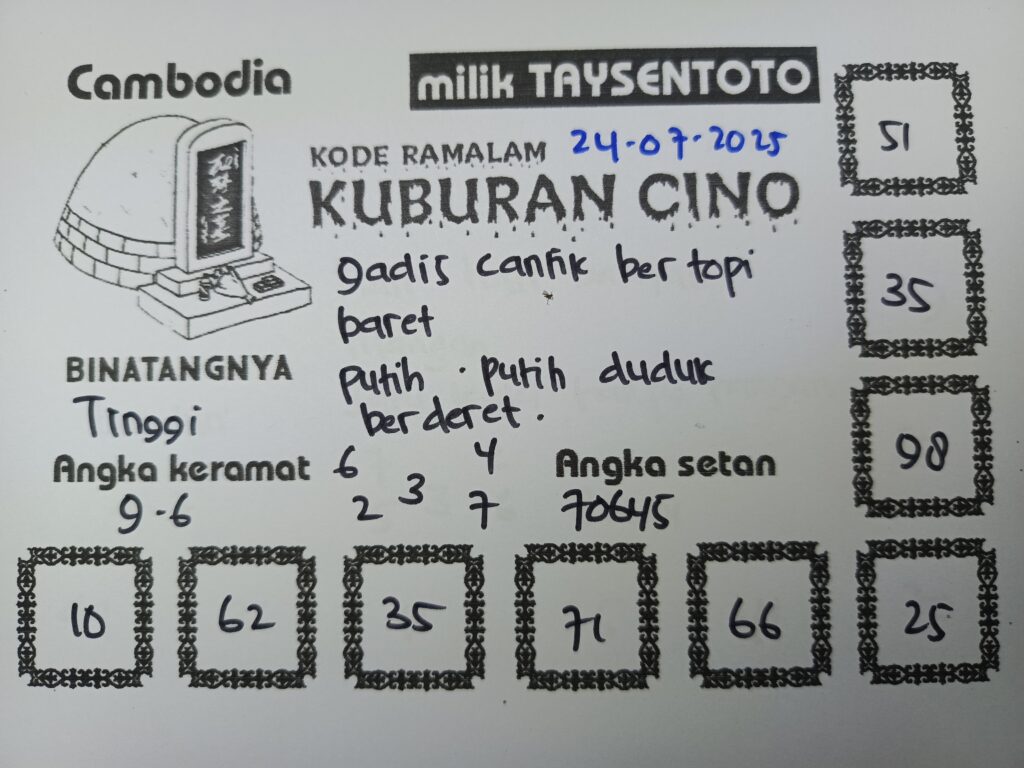 Cambodia
milik TAYSENTOTO
KODE RAMALAM 24-07-2025
KUBURAN CINO
gadis cantik bertopi
baret
putih . putih duduk
berderet .
BINATANGNYA
Tinggi
Angka keramat
9-6
6 4
2 3 7
Angka setan
70645
51
35
98
10 62 35 71 66 25